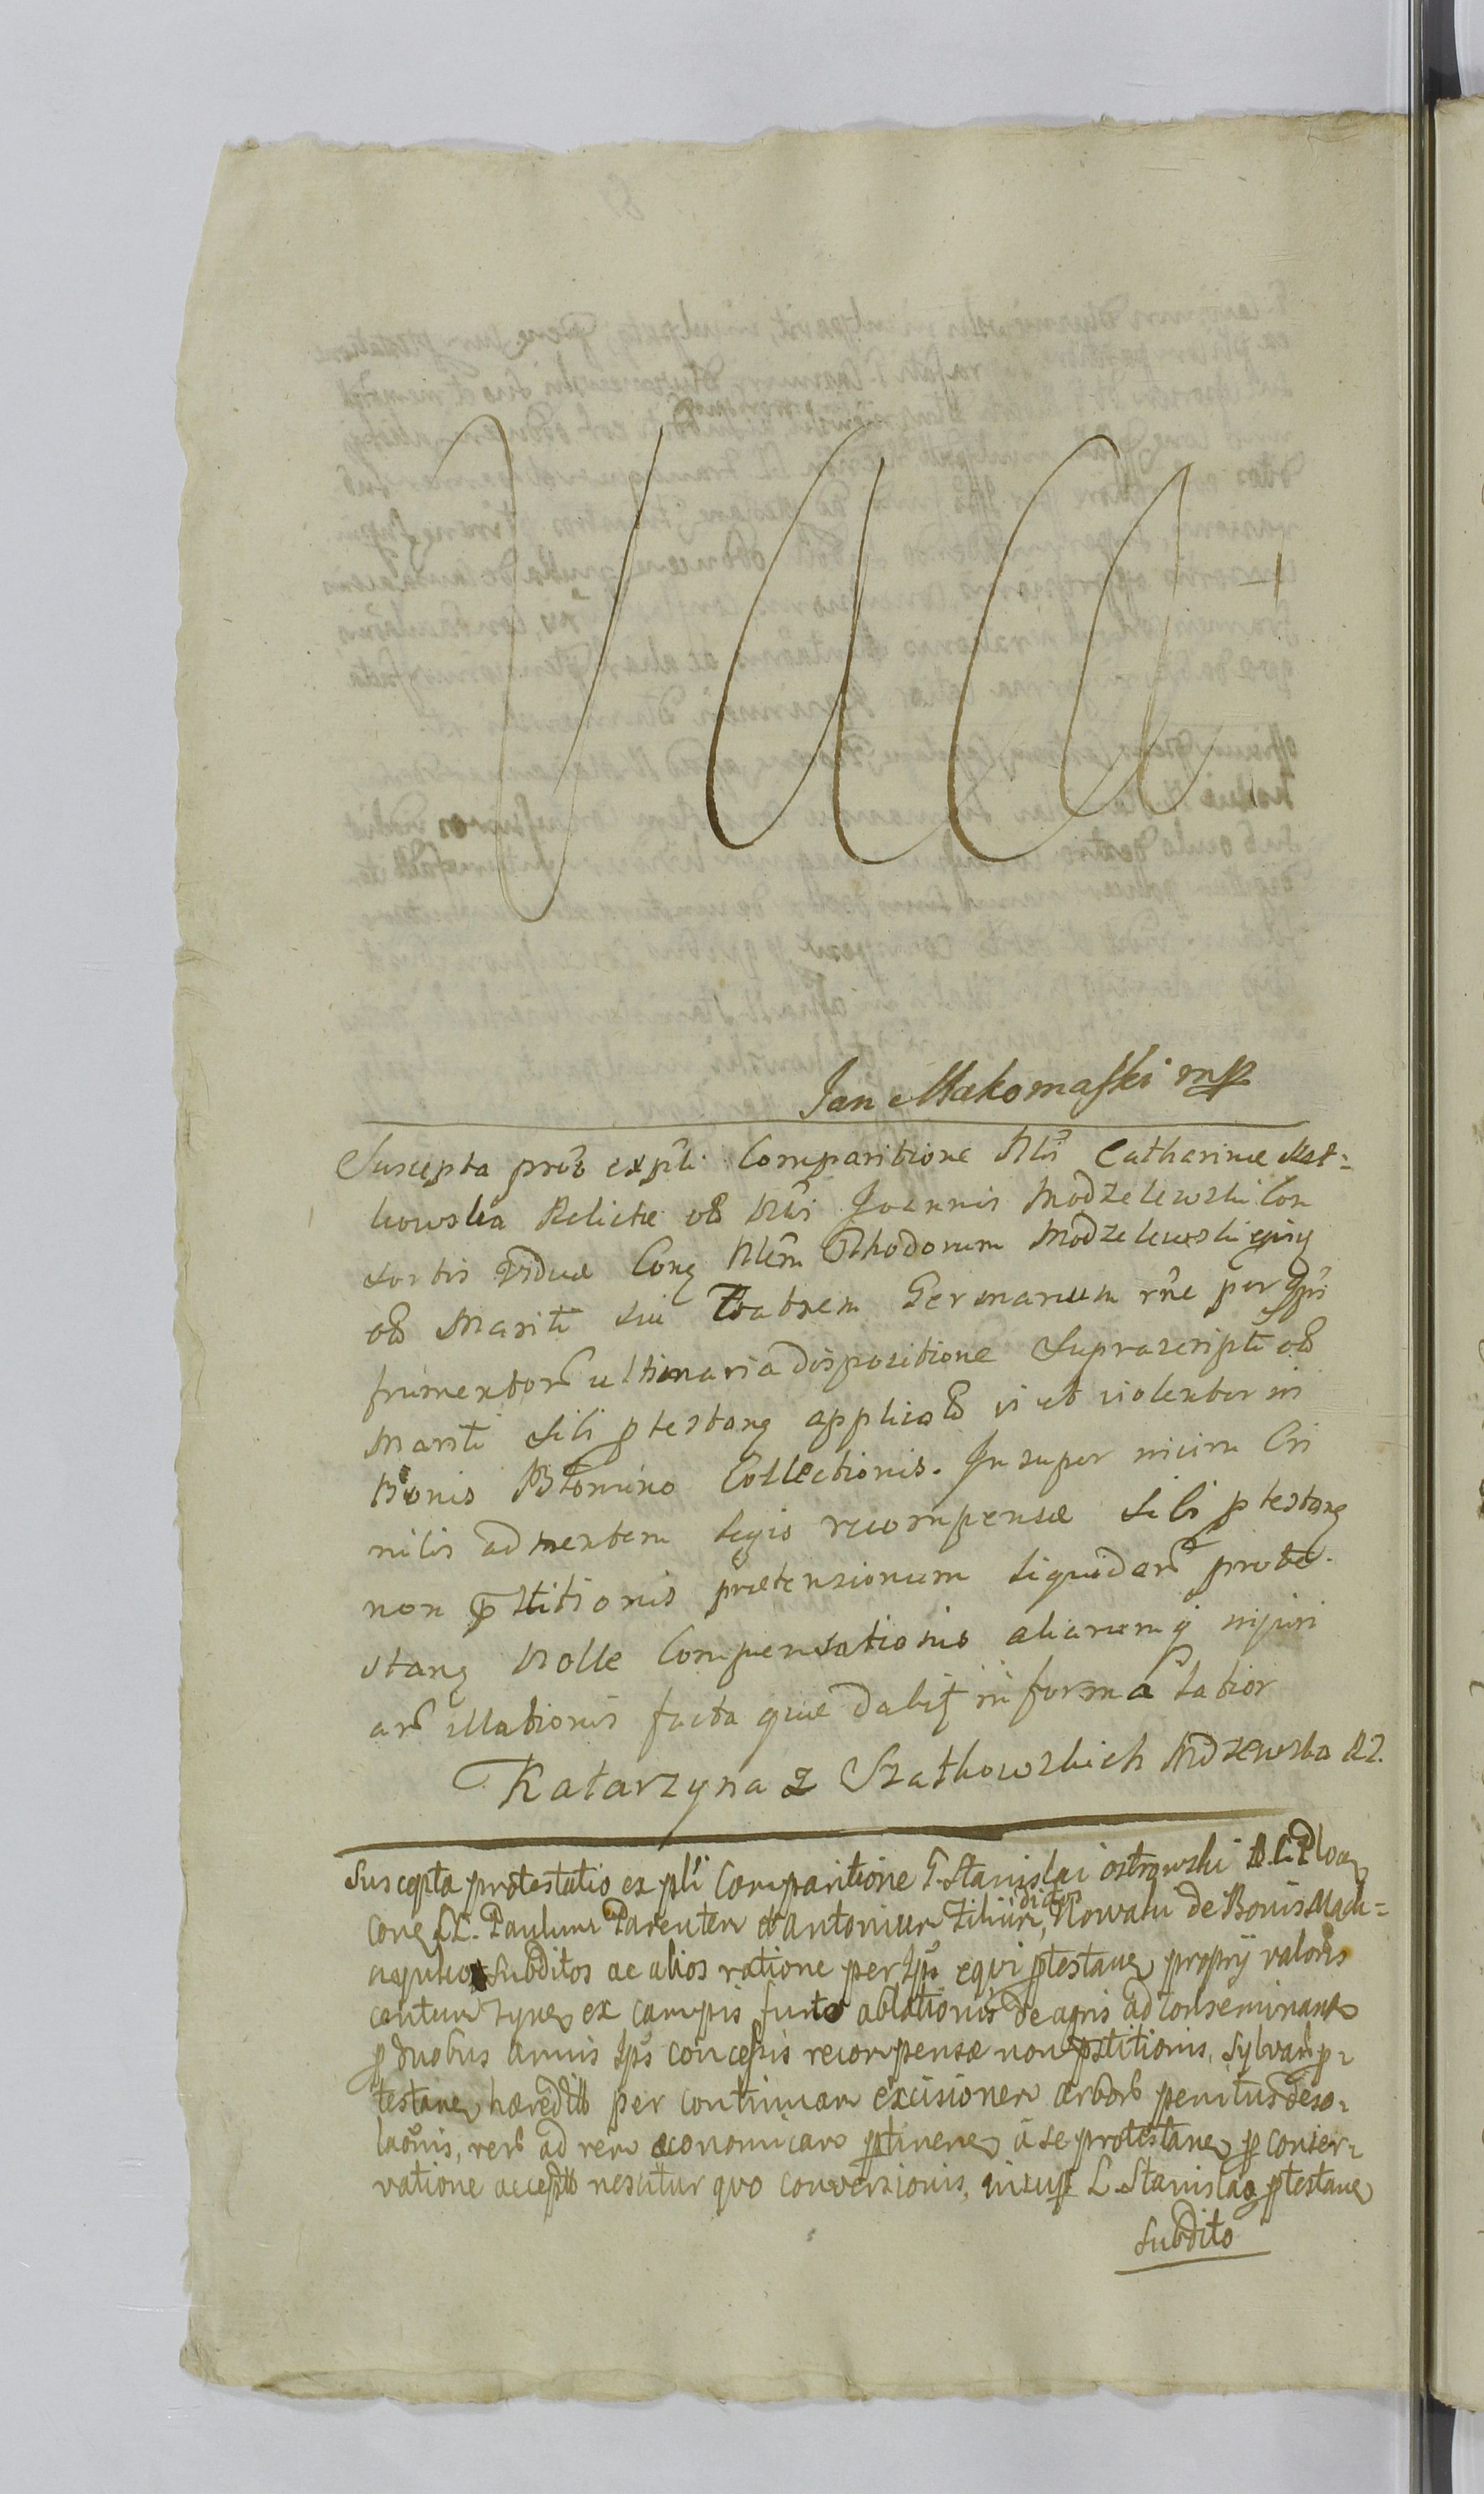 Jan Makomaski mp
Suscepta pro͠o exp͠li Comparitione Nli͠s Catharinæ Szat=
kowska Relictæ olî Nli͠s Joannis Modzelewski Con
sortis Viduæ Cong Nle͠m Thodorum Modzelewski ejusq
olî Mariti sui Fratrem Germanum r͠ne per Ip͠s
frumentor͠ ultimaria dispositione Suprascripti olî
Mariti sibi ptestang applicatô vi et violenter in
Bonis Błomino Collectionis. In super vicini Cri
nilis ad mentem Legis recompensæ sibi ptestang
non p͠stitionis prætensionum liquidar͠ prote
stang Nolle Compensationis aliarumq injuri
ar͠ illationis facta quæ dabit͠ in forma latior
Katarzyna z Szatkowskich Mdzewska RZ.
Suscepta protestatio ex pl͠i Comparitione G. Stanislai ostrowski
cong LL. Paulum Parentem et Antonium Filium, dictos Nowaki de Bonis
subditos ac alios ratione per Ip͠s equi ptestang proprij valoris
centum tynf ex campis furto ablationis de agris ad conseminand
p duobus annis Ip͠s concessis recompensæ non pstitionis, sylvar͠ p=
testang hæredit͠ per continuam excisionem arbor͠ penitus deso=
la͠onis, rer͠ ad rem œconomicam ptinen à se protestang p conser=
vatione accept͠ nescitur quo conversionis, insup L. Stanislao ptestang
subdito